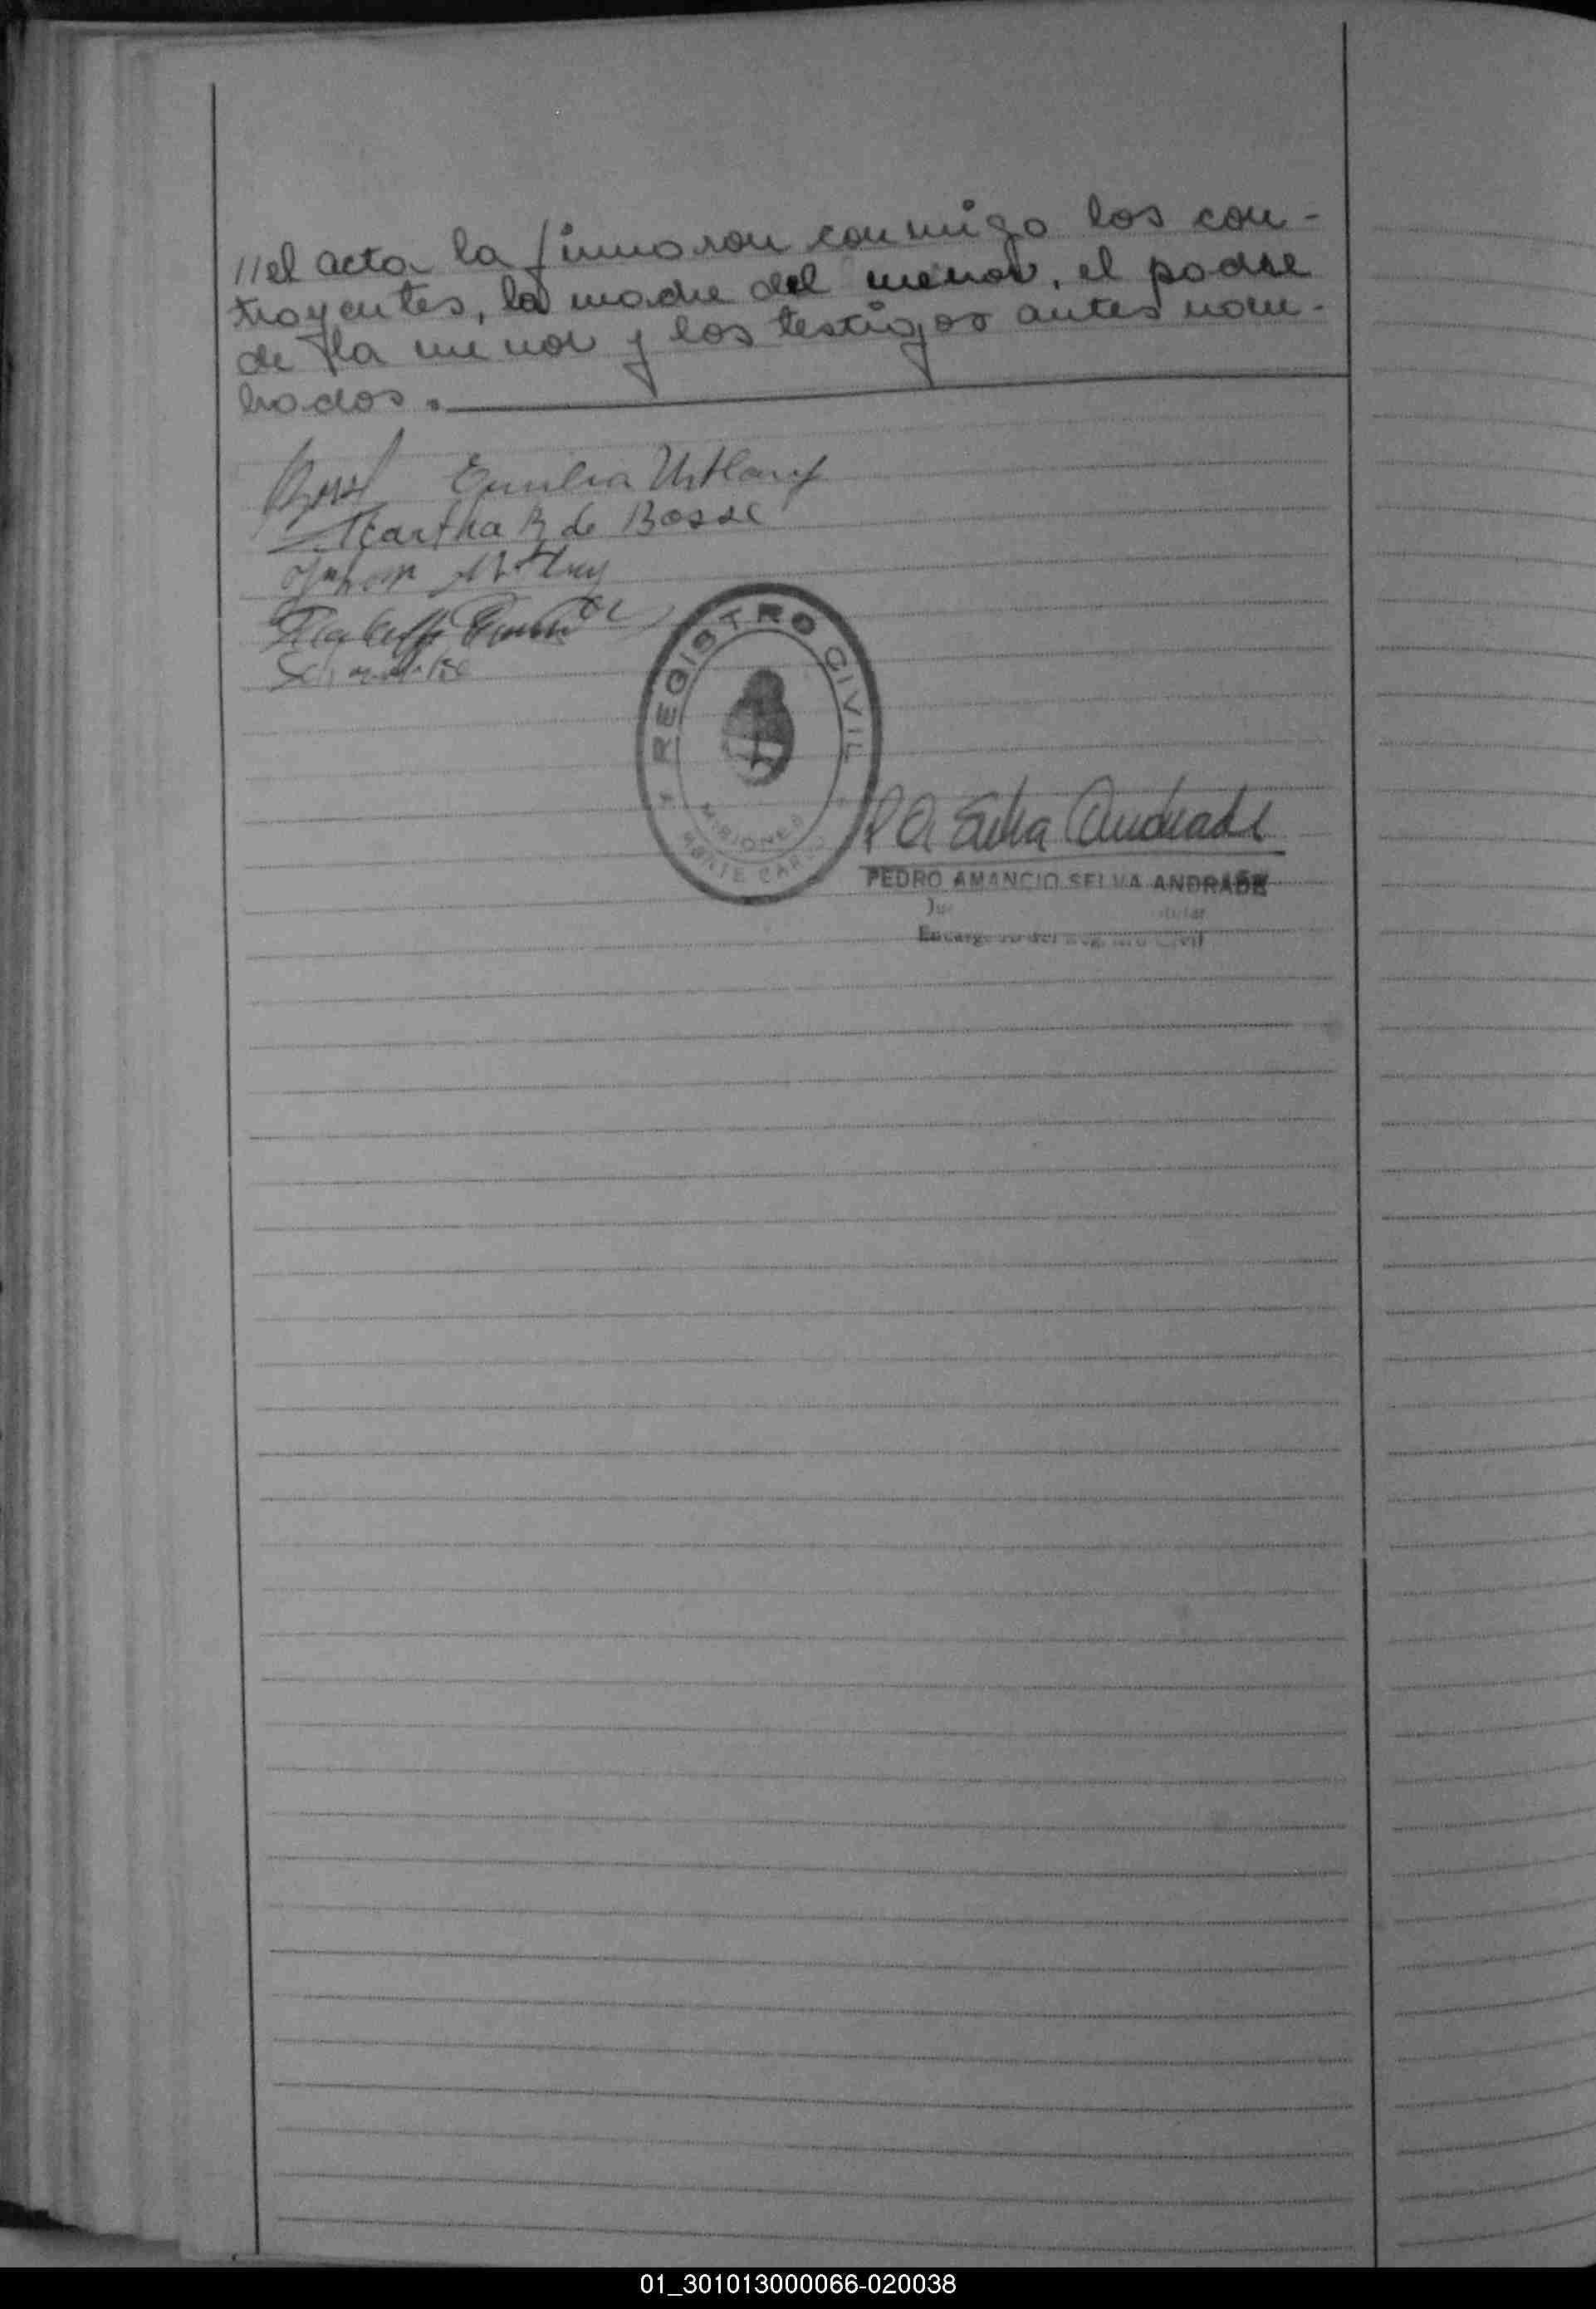 //el acta la firmaron conmigo los con-
trayentes, la madre del menor, el padre
de la menor y los testigos antes nom-
brados.
Emilia
Martha B de Bosse
REGISTRO CIVIL
MISIONES
MONTE CARLO
P A Selva Andrade
PEDRO AMANCIO SELVA ANDRADE
Encargado del Registro Civil
01_301013000066-020038